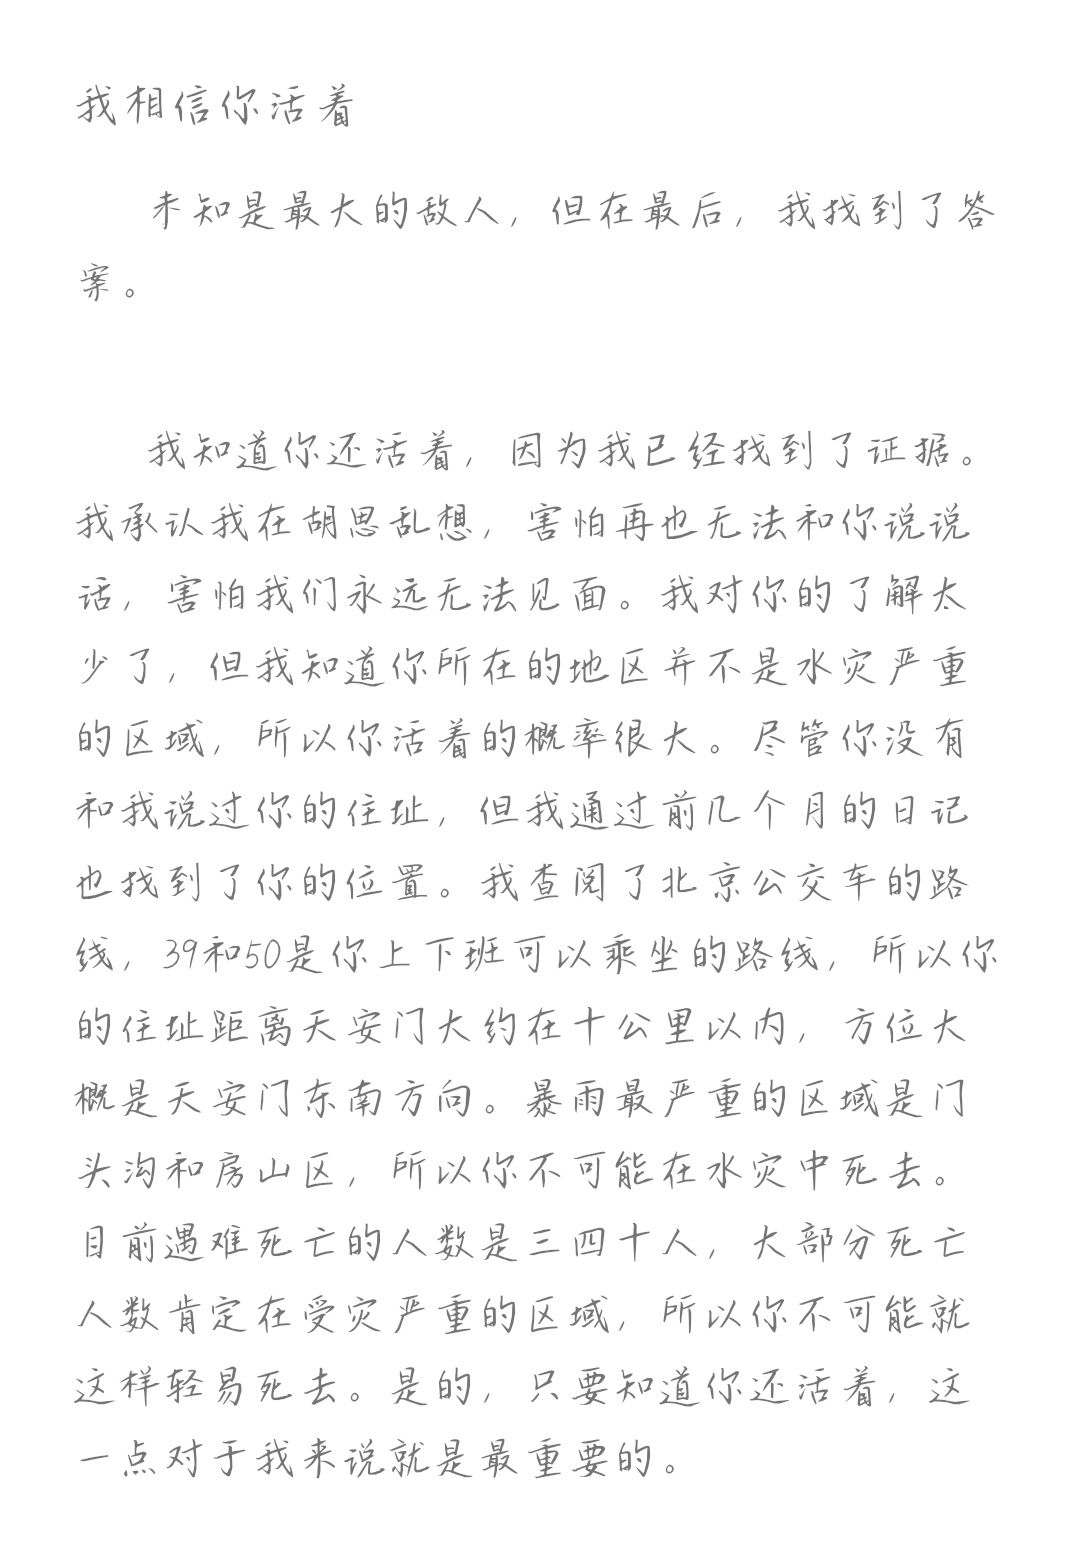 我相信你活着
未知是最大的敌人，但在最后，我找到了答
案。
我知道你还活着，因为我已经找到了证据。
我承认我在胡思乱想，害怕再也无法和你说说
话，害怕我们永远无法见面。我对你的了解太
少了，但我知道你所在的地区并不是水灾严重
的区域，所以你活着的概率很大。尽管你没有
和我说过你的住址，但我通过前几个月的日记
也找到了你的位置。我查阅了北京公交车的路
线，39和50是你上下班可以乘坐的路线，所以你
的住址距离天安门大约在十公里以内，方位大
概是天安门东南方向。暴雨最严重的区域是门
头沟和房山区，所以你不可能在水灾中死去。
目前遇难死亡的人数是三四十人，大部分死亡
人数肯定在受灾严重的区域，所以你不可能就
这样轻易死去。是的，只要知道你还活着，这
一点对于我来说就是最重要的。